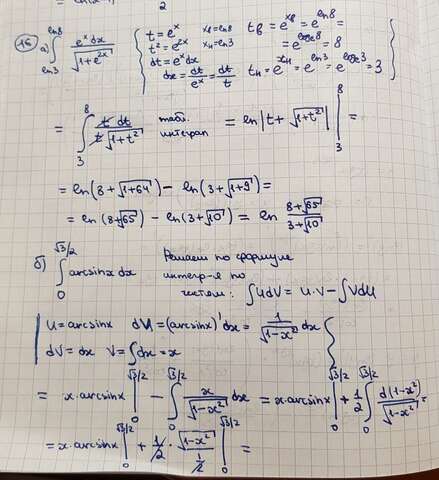 2
16 a) ∫_{ln3}^{ln8} e^x dx / √(1+e^{2x}) { t = e^x x_в = ln8 t_в = e^{x_в} = e^{ln8} =
t² = e^{2x} x_н = ln3 = e^{log_e 8} = 8
dt = e^x dx t_н = e^{x_н} = e^{ln3} = e^{log_e 3} = 3
dx = dt/e^x = dt/t }
= ∫_3^8 t dt / t√(1+t²) табл. интеграл = ln|t + √(1+t²)| |_3^8 =
= ln(8+√(1+64)) − ln(3+√(1+9)) =
= ln(8+√65) − ln(3+√10) = ln (8+√65)/(3+√10)
б) ∫_0^{√3/2} arcsinx dx Решаем по формуле
интегр-я по
частям: ∫UdV = U·V − ∫VdU
U = arcsinx dU = (arcsinx)' dx = 1/√(1−x²) dx
dV = dx V = ∫dx = x
= x·arcsinx |_0^{√3/2} − ∫_0^{√3/2} x/√(1−x²) dx = x·arcsinx |_0^{√3/2} + 1/2 ∫_0^{√3/2} d(1−x²)/√(1−x²) =
= x·arcsinx |_0^{√3/2} + 1/2 · √(1−x²)/(1/2) |_0^{√3/2} =